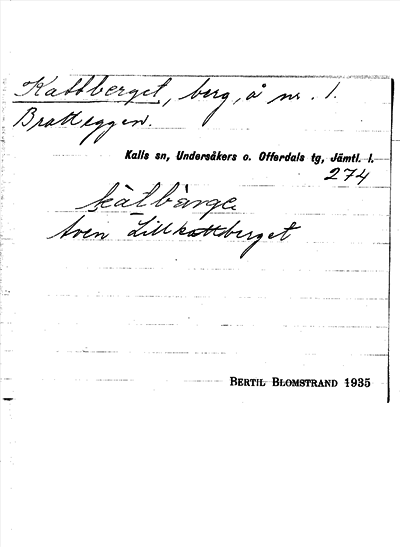 Kattberget, berg, å nr. 1.
Bratteggen.
Kalls sn, Undersåkers o. Offerdals tg, Jämtl. l.
274
kàtbärge
även Lillkattberget
BERTIL BLOMSTRAND 1935